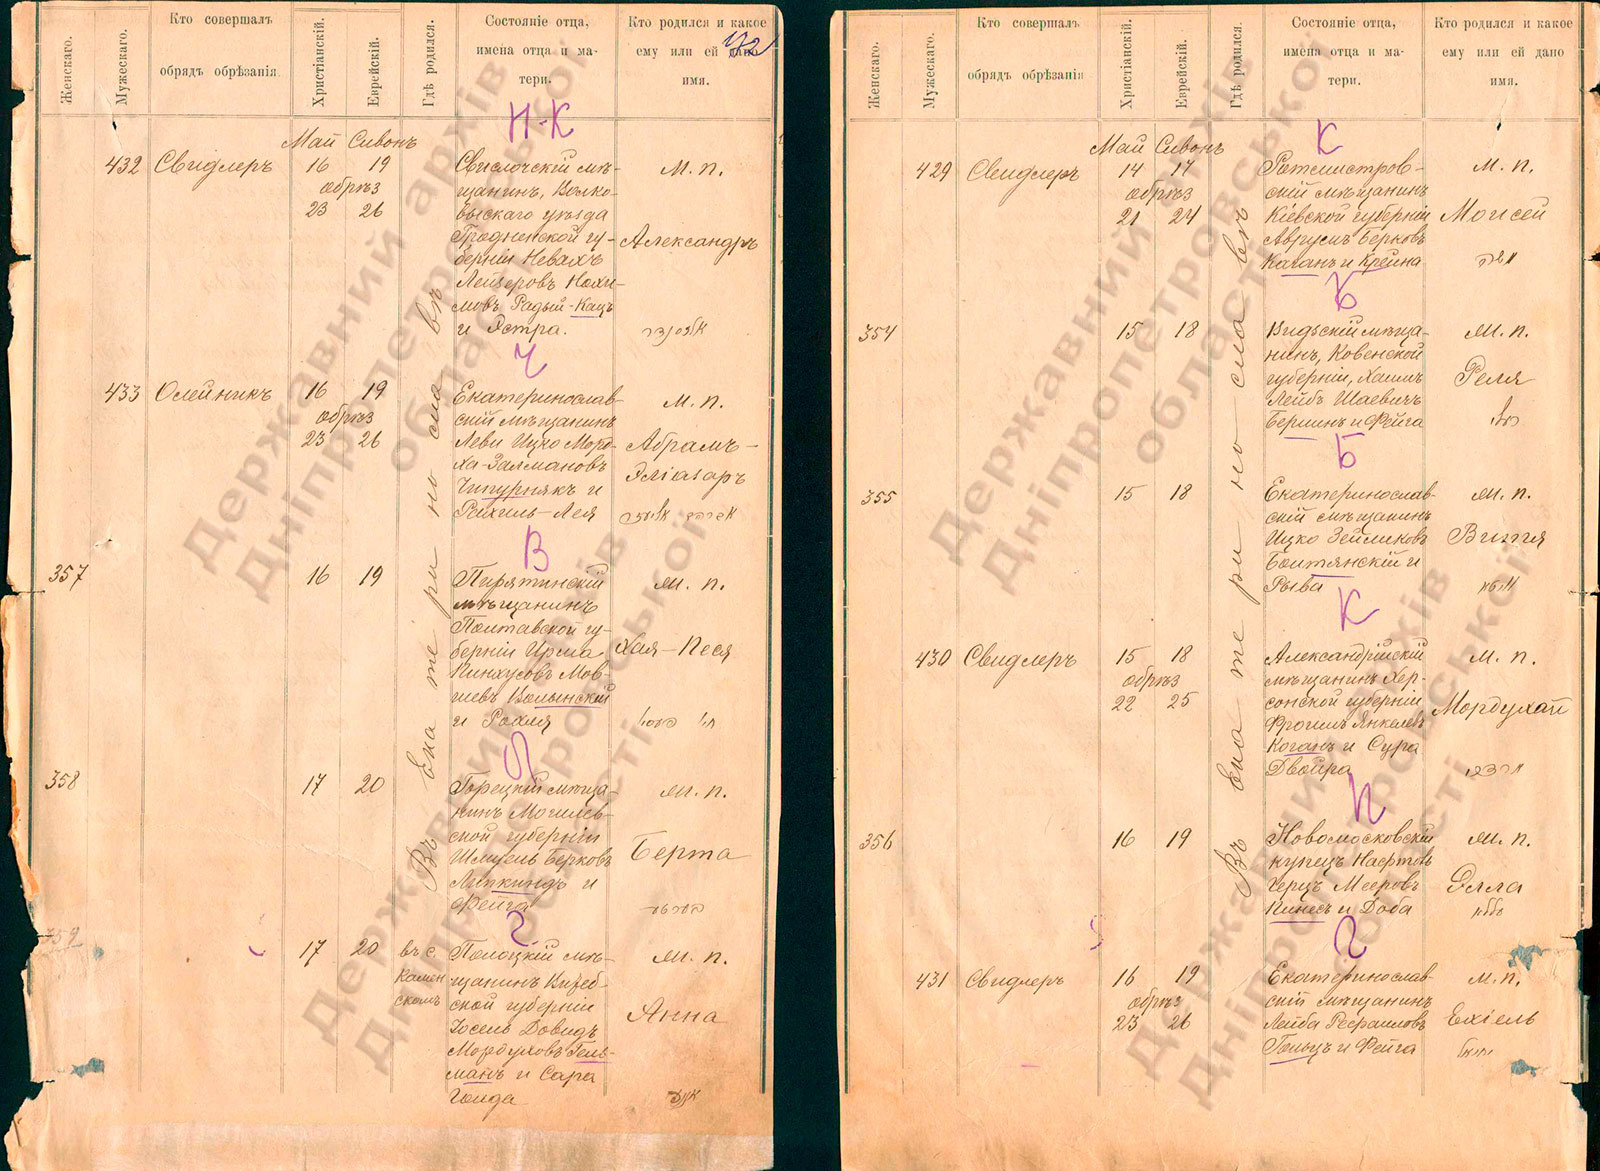 Женскаго.
Мужескаго.
Кто совершалъ
обрядъ обрѣзанія.
Христіанскій.
Еврейскій.
Гдѣ родился.
Состояніе отца,
имена отца и ма-
тери.
Кто родился и какое
ему или ей дано
имя.
Н-К
Май Сивонъ
432 Свидлеръ 16 19
обрѣз
23 26
Свислочскій мѣ-
щанинъ, Волко-
выскаго уѣзда
Гродненской гу-
берніи Невахъ
Лейзеровъ Нохи-
мовъ Радый-Кацъ
и Эстра.
М. п.
Александръ
Ч
433 Олейникъ 16 19
обрѣз
23 26
Екатеринослав-
скій мѣщанинъ
Леви Ицко Мордо-
ха-Залмановъ
Чипурнякъ и
Рахиль-Лея
М. п.
Абрамъ-
Эліазаръ
В
357 16 19
Пирятинскій
мѣщанинъ
Полтавской гу-
берніи Ирма
Пинхусовъ Мов-
шевъ Волынскій
и Рохля
М. п.
Хая-Песя
Л
358 17 20
Горецкій мѣща-
нинъ Могилев-
ской губерніи
Шмуель Берковъ
Липкиндъ и
Фейга
М. п.
Берта
Г
359 17 20
въ с.
Камен
скомъ
Полоцкій мѣ-
щанинъ Витеб-
ской губерніи
Іосель Довидъ
Мордуховъ Гель-
манъ и Сара
Голда
М. п.
Анна
אננא
Въ Екатеринославѣ
Женскаго.
Мужескаго.
Кто совершалъ
обрядъ обрѣзанія
Христіанскій.
Еврейскій.
Гдѣ родился.
Состояніе отца,
имена отца и ма-
тери.
Кто родился и какое
ему или ей дано
имя.
К
Май Сивонъ
429 Свидлеръ 14 17
обрѣз
21 24
Ротмистров-
скій мѣщанинъ
Кіевской губерніи
Аврумъ Берковъ
Каганъ и Крейна
М. п.
Моисей
Б
354 15 18
Видзскій мѣща-
нинъ, Ковенской
губерніи, Хаимъ
Лейбъ Шаевичъ
Берминъ и Фейга
М. п.
Реля
Б
355 15 18
Екатеринослав-
скій мѣщанинъ
Ицко Зейликовъ
Болтянскій и
Рыва
М. п.
К
430 Свидлеръ 15 18
обрѣз
22 25
Александрійскій
мѣщанинъ Хер-
сонской губерніи
Фроимъ Янкелевъ
Коганъ и Сура
Двойра
М. п.
Мордухай
П
356 16 19
Новомосковскій
купецъ Нафтоль
Херцъ Мееровъ
Пинесъ и Доба
М. п.
Элла
Г
431 Свидлеръ 16 19
обрѣз
23 26
Екатеринослав-
скій мѣщанинъ
Лейба Рефаиловъ
Гольцъ и Фейга
М. п.
Ехіель
Въ Екатеринославѣ
Державний архів
Дніпропетровської
області
Державний архів
Дніпропетровської
області
Державний архів
Дніпропетровської
області
Державний архів
Дніпропетровської
області